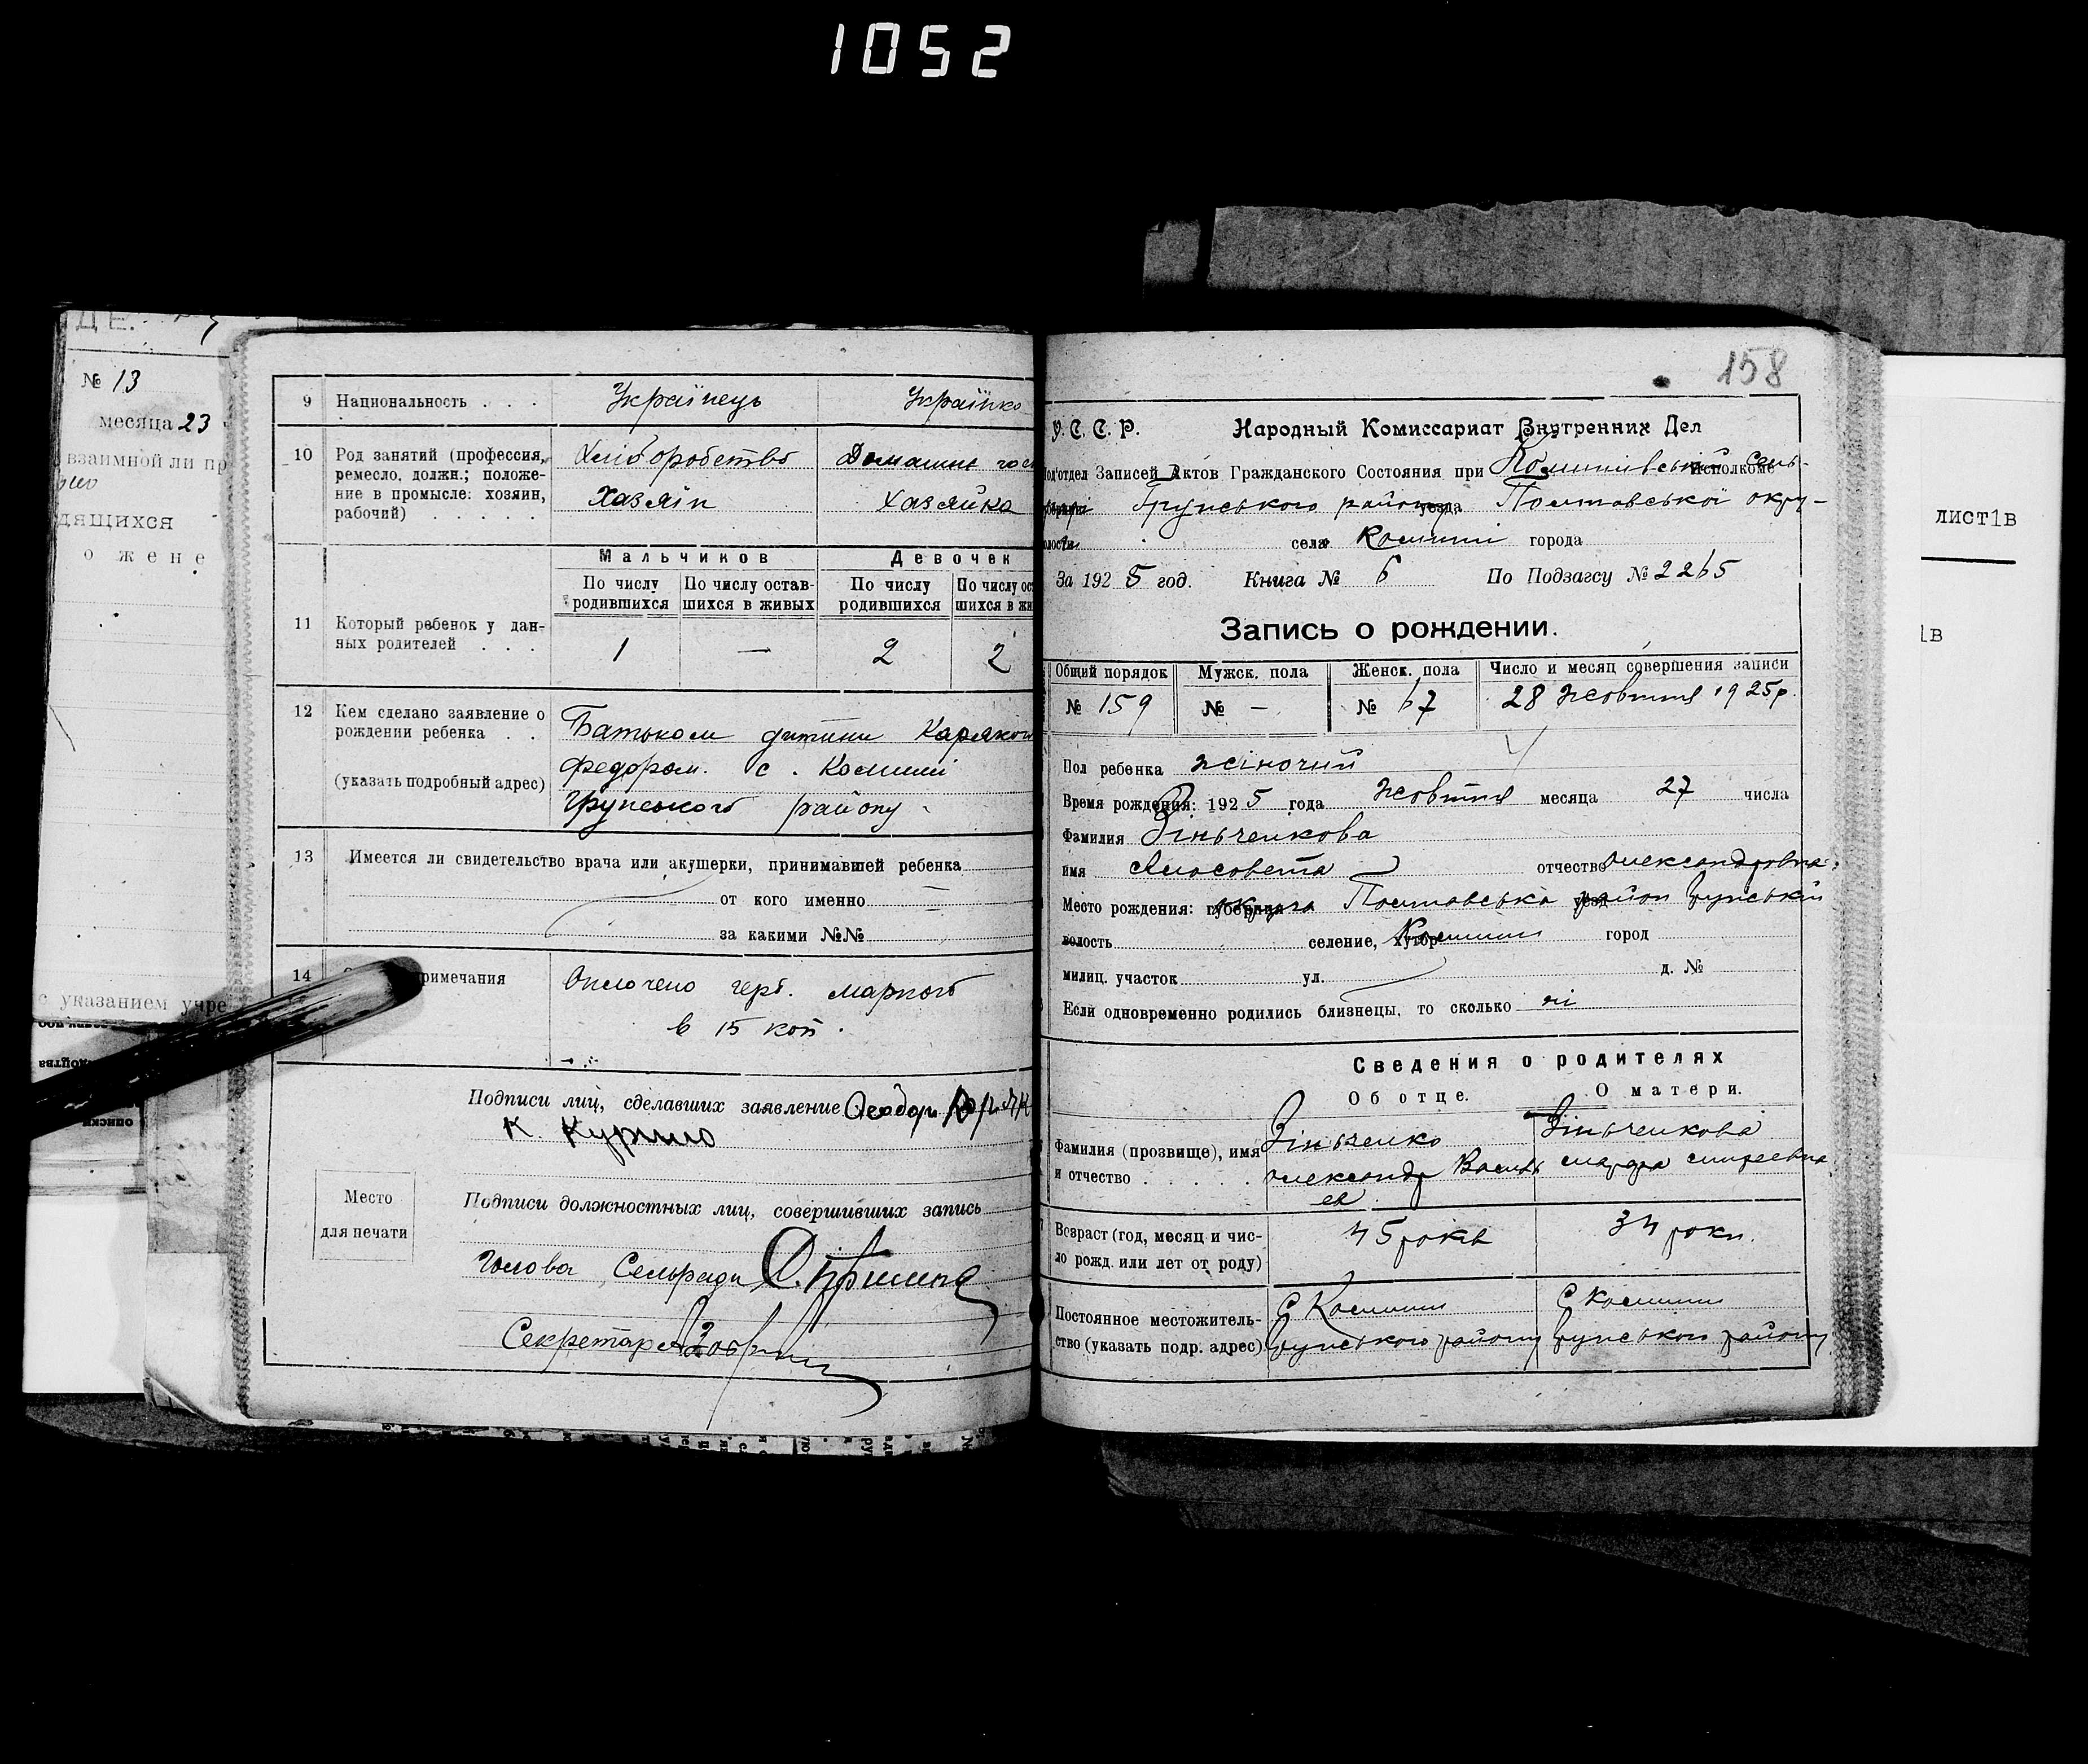 1052
№ 13
месяца 23
взаимной ли пр
дящихся
о жене
с указанием учре
9 Национальность . . . Українець Українка
10 Род занятий (профессия, ремесло, должн.; положение в промысле: хозяин, рабочий) . . . . . Хліборобство Домашнє гос
Хазяїн Хазяйка
Мальчиков Девочек
По числу родившихся По числу оставшихся в живых По числу родившихся По числу ос
шихся в жи
11 Который ребенок у данных родителей . . . 1 — 2 2
12 Кем сделано заявление о рождении ребенка . . Батьком дитини Карякою
(указать подробный адрес) Федором. с. Комиші
Грунського району
13 Имеется ли свидетельство врача или акушерки, принимавшей ребенка
от кого именно —
за какими №№
14 римечания Оплочено герб. маркою
в 15 коп.
Подписи лиц, сделавших заявление
Место для печати
Подписи должностных лиц, совершивших запись
Голова Сельради
Секретар
158
У. С. С. Р. Народный Комиссариат Внутренних Дел
Под'отдел Записей Актов Гражданского Состояния при Комишівській Сель-
Грунського району Полтавської окру-
села Комиші города
За 1925 год. Книга № 6 По Подзагсу № 2265
Запись о рождении.
Общий порядок Мужск. пола Женск. пола Число и месяц совершения записи
№ 159 № — № 67 28 жовтня 1925р.
Пол ребенка жіночий
Время рождения: 1925 года жовтня месяца 27 числа
Фамилия Зіньченкова
имя отчество Олександровна
Место рождения: округа Полтавська район Грунський
волость селение, Комиші город
милиц. участок ул. д. №
Если одновременно родились близнецы, то сколько ні
Сведения о родителях
Об отце. О матери.
Фамилия (прозвище), имя и отчество . . . . . Зіньченко Зіньченкова
Олександр Василь
ев
Возраст (год, месяц и число рожд. или лет от роду) 45 років 34 роки.
Постоянное местожительство (указать подр. адрес) С Комиші С Комиші
Грунського району Грунського району
лист1в
1в